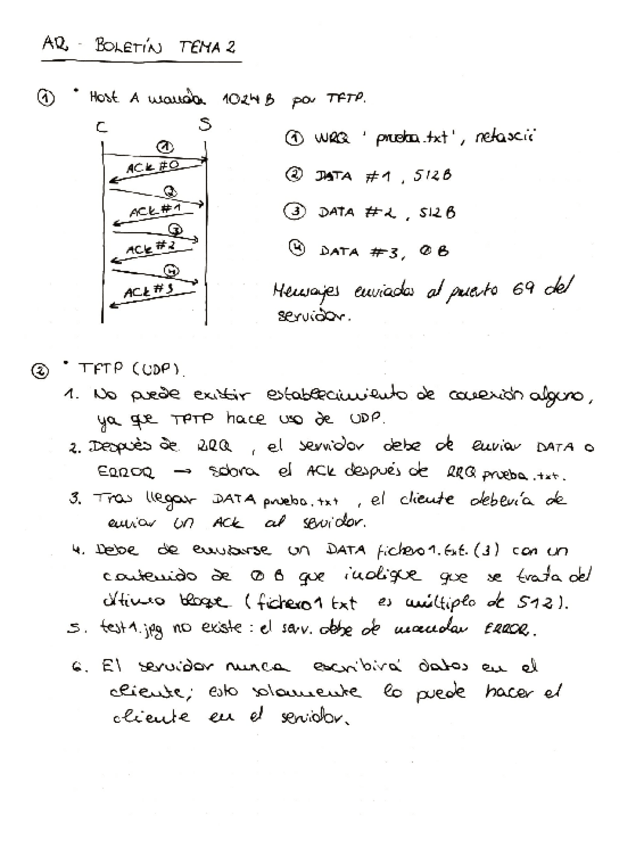 AR - BOLETÍN TEMA 2
① • Host A manda 1024 B por TFTP.
C S
①
ACK #0
②
ACK #1
③
ACK #2
④
ACK #3
① WRQ 'prueba.txt', netascii
② DATA #1, 512 B
③ DATA #2, 512 B
④ DATA #3, 0 B
Mensajes enviados al puerto 69 del
servidor.
② • TFTP (UDP).
1. No puede existir establecimiento de conexión alguno,
ya que TFTP hace uso de UDP.
2. Después de RRQ, el servidor debe de enviar DATA o
ERROR → sobra el ACK después de RRQ prueba.txt.
3. Tras llegar DATA prueba.txt, el cliente debería de
enviar un ACK al servidor.
4. Debe de enviarse un DATA fichero1.txt.(3) con un
contenido de 0 B que indique que se trata del
último bloque (fichero1 txt es múltiplo de 512).
5. test1.jpg no existe: el serv. debe de mandar ERROR.
6. El servidor nunca escribirá datos en el
cliente; esto solamente lo puede hacer el
cliente en el servidor.